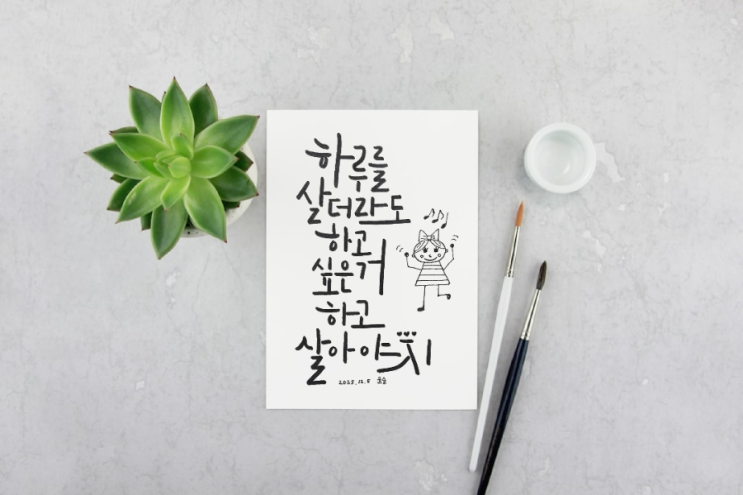 하루를
살더라도
하고
싶은거
하고
살아야지
2025.12.5